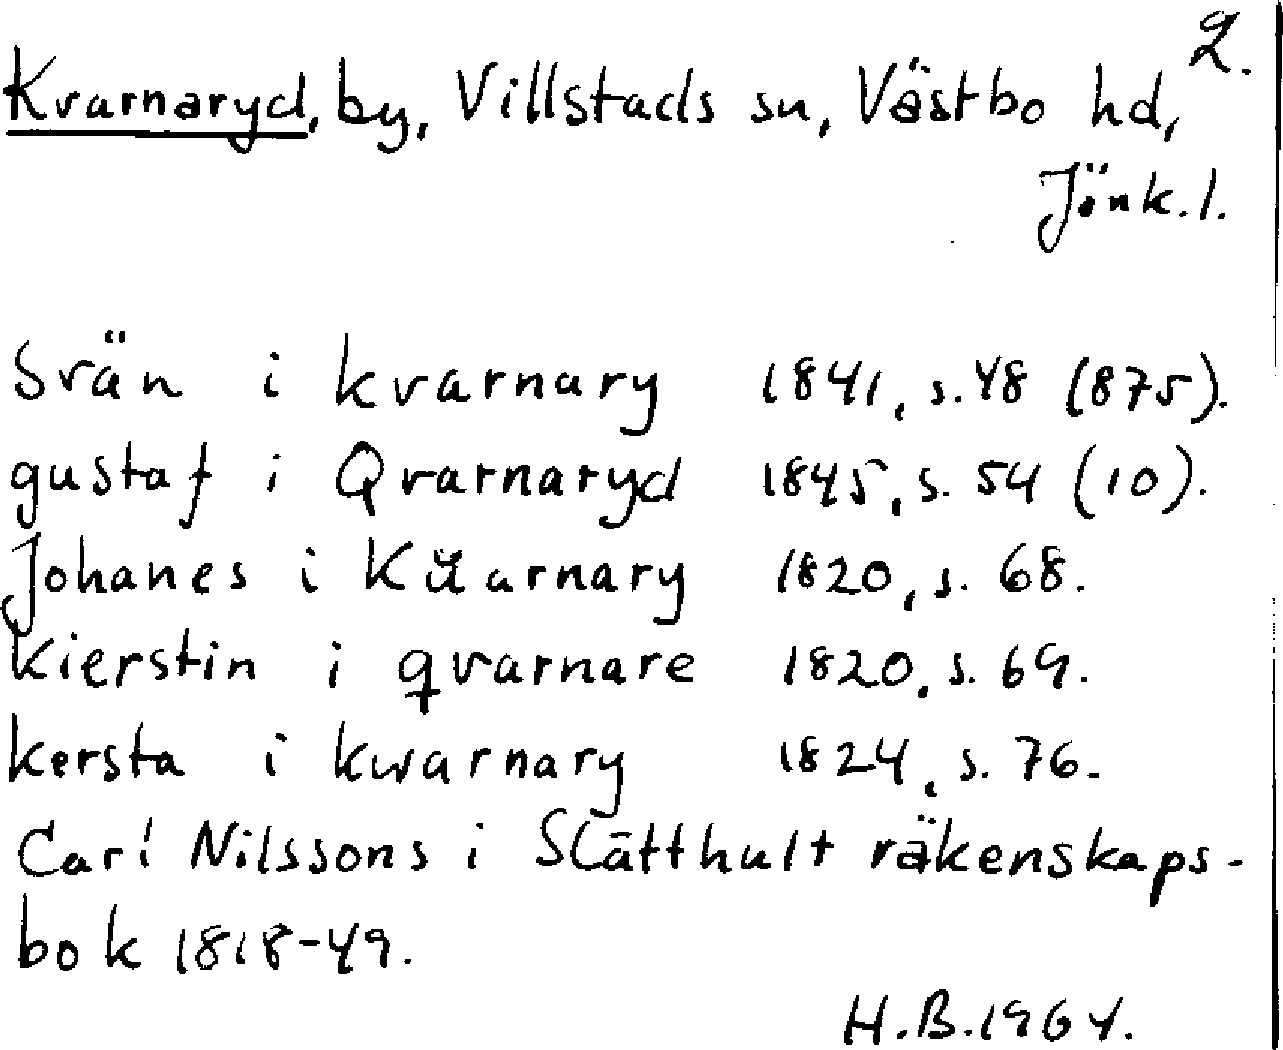 2.
Kvarnaryd, by, Villstads sn, Västbo hd,
Jönk.l.
Svän i kvarnary 1841, s.48 (875).
gustaf i Qvarnaryd 1845, s. 54 (10).
Johanes i Küarnary 1820, s. 68.
Kierstin i qvarnare 1820, s. 69.
kersta i kwarnary 1824, s. 76.
Carl Nilssons i Slätthult räkenskaps-
bok 1818-49.
H.B.1964.